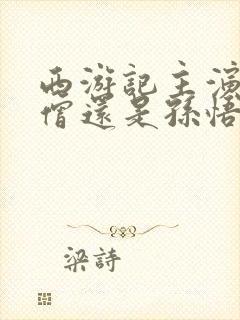 西游記主演
僧還是孫悟
梁詩